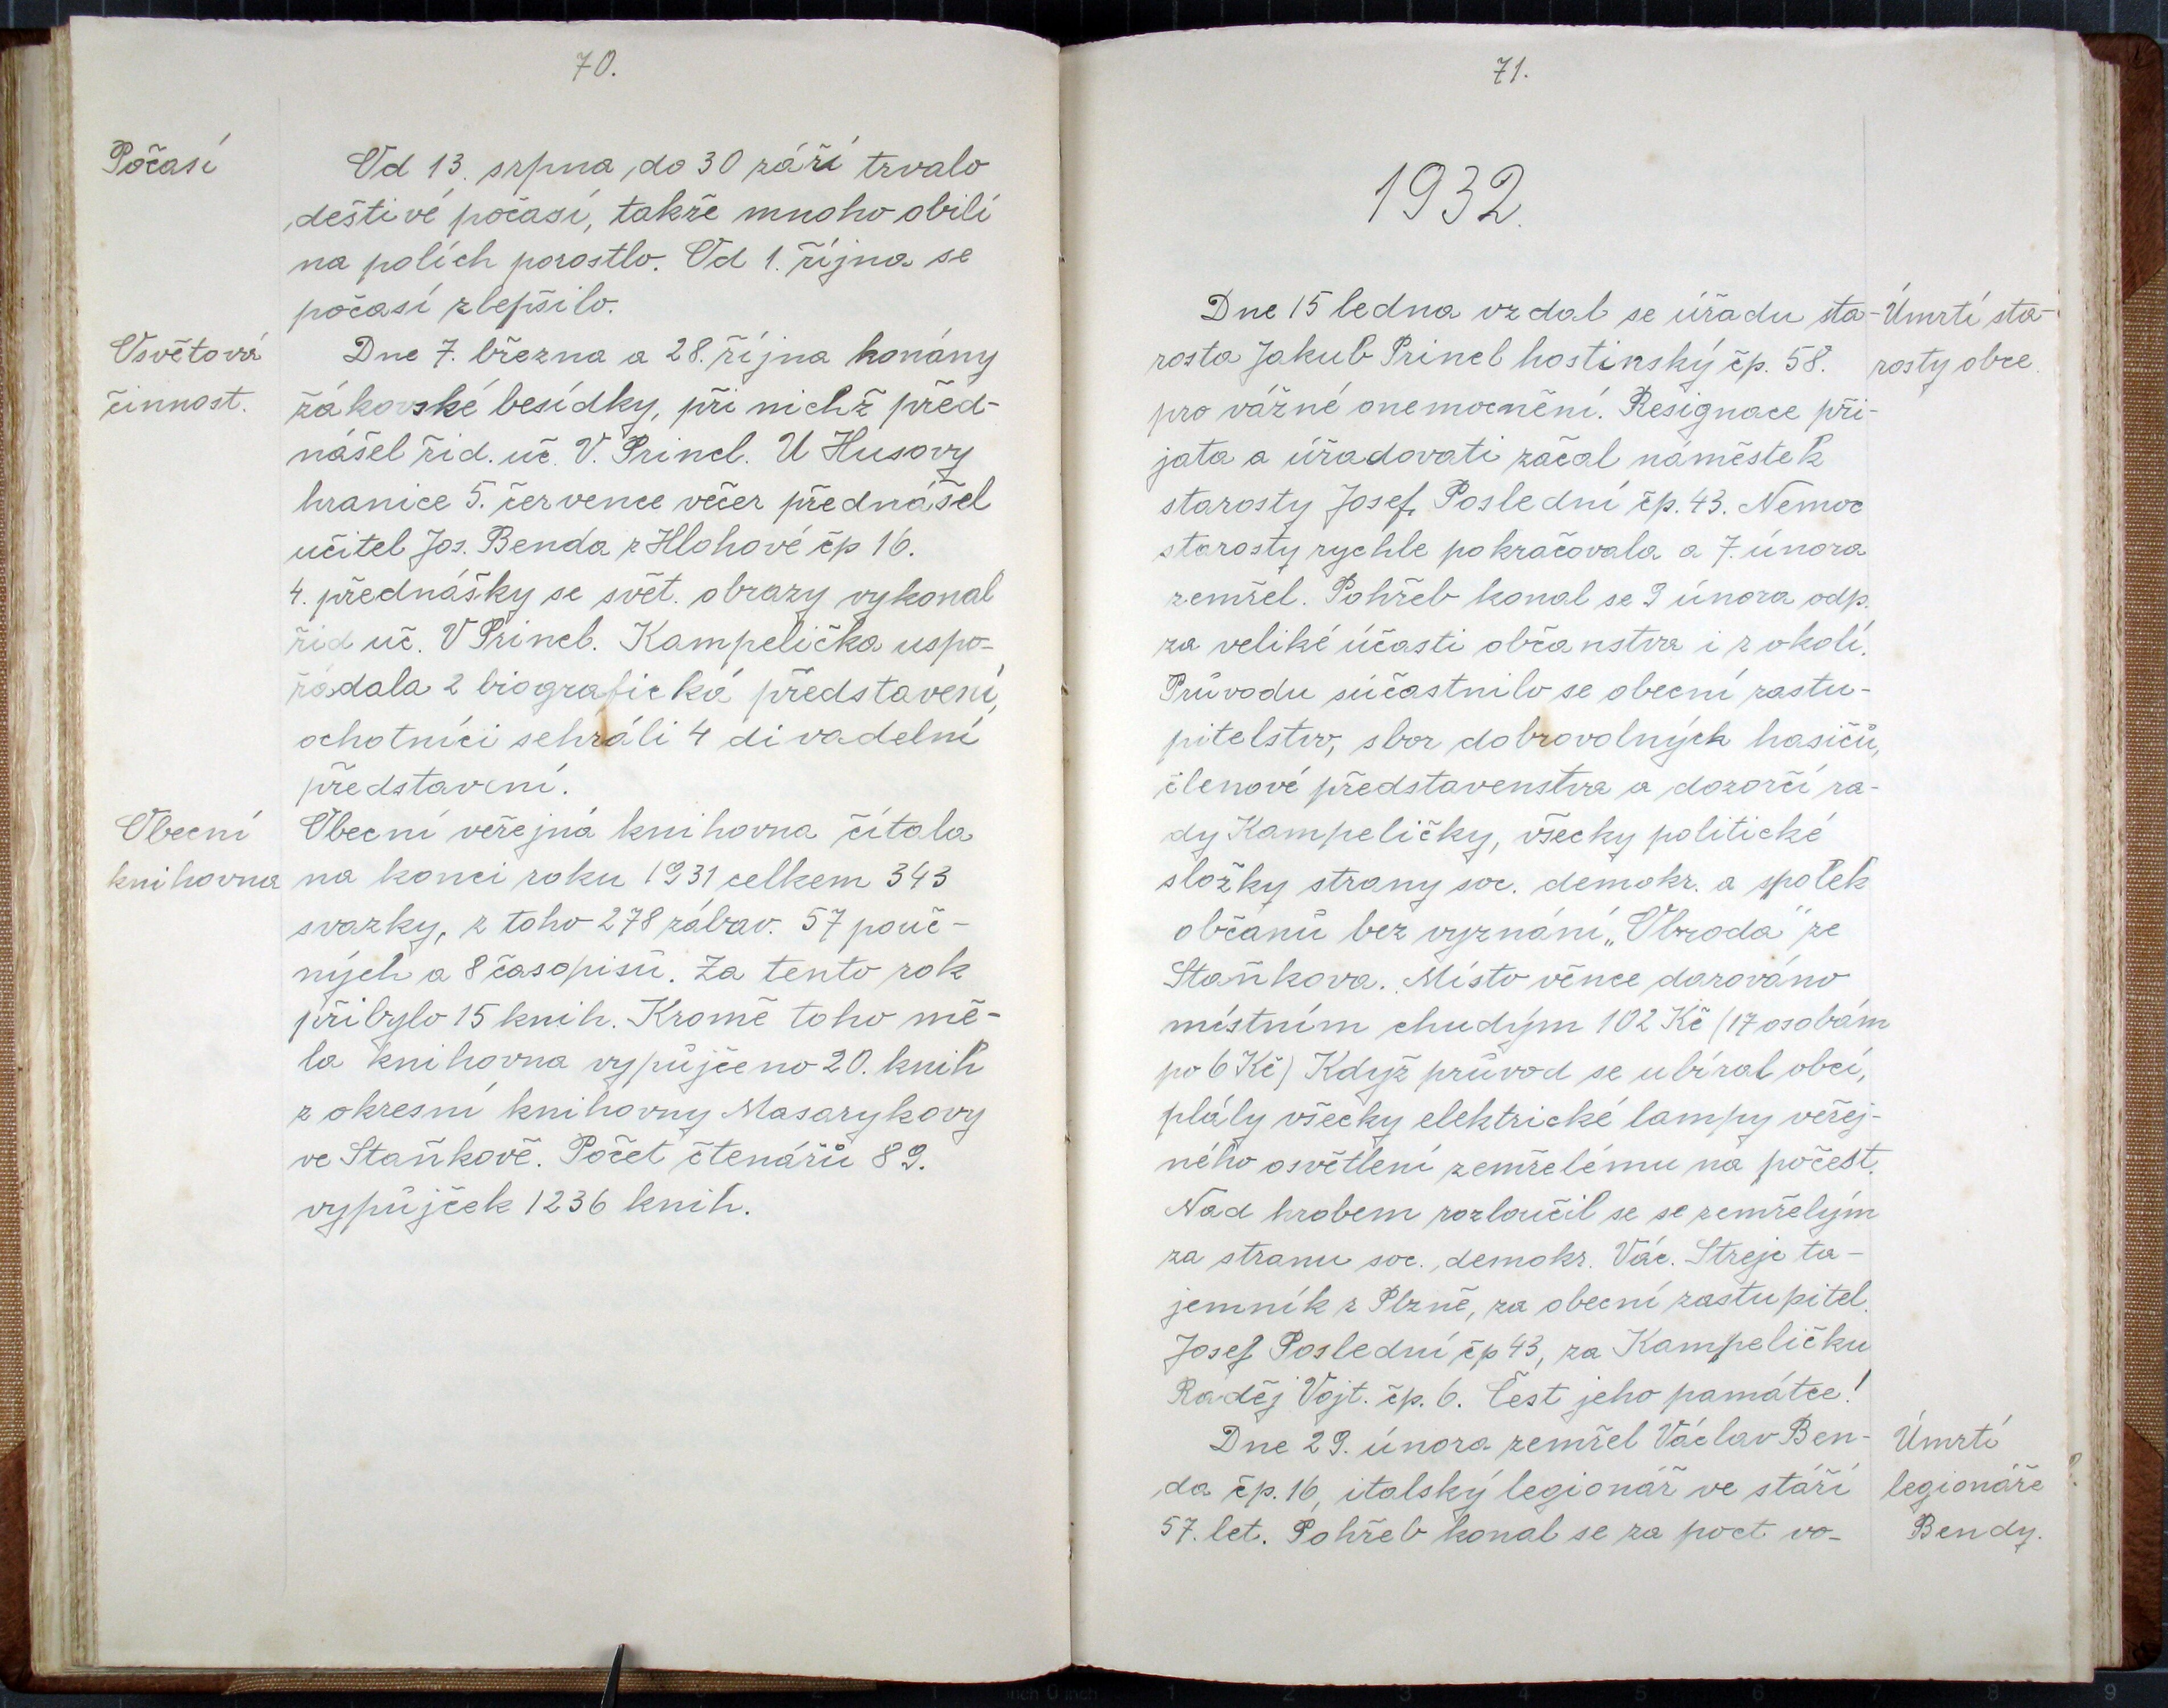 70.
Počasí
Od 13. srpna do 30 září trvalo
deštivé počasí, takže mnoho obilí
na polích porostlo. Od 1. října se
počasí zlepšilo.
Osvětová
činnost.
Dne 7. března a 28. října konány
žákovské besídky, při nichž před-
nášel říd. uč. V. Princl. U Husovy
hranice 5. července večer přednášel
učitel Jos. Benda z Hlohové čp 16.
4. přednášky se svět. obrazy vykonal
říd uč. V Princl. Kampelička uspo-
řádala 2 biografická představení,
ochotníci sehráli 4 divadelní
představení.
Obecní
knihovna
Obecní veřejná knihovna čítala
na konci roku 1931 celkem 343
svazky, z toho 278 zábav. 57 pouč-
ných a 8 časopisů. Za tento rok
přibylo 15 knih. Kromě toho mě-
la knihovna vypůjčeno 20. knih
z okresní knihovny Masarykovy
ve Staňkově. Počet čtenářů 89.
vypůjček 1236 knih.
71.
1932.
Dne 15 ledna vzdal se úřadu sta-
rosta Jakub Princl hostinský čp. 58.
pro vážné onemocnění. Resignace při-
jata a úřadovati začal náměstek
starosty Josef Poslední čp. 43. Nemoc
starosty rychle pokračovala a 7. února
zemřel. Pohřeb konal se 9 února odp.
za veliké účasti občanstva i z okolí.
Průvodu súčastnilo se obecní zastu-
pitelstvo, sbor dobrovolných hasičů,
členové představenstva a dozorčí ra-
dy Kampeličky, všecky politické
složky strany soc. demokr. a spolek
občanů bez vyznání „Obroda" ze
Staňkova. Místo věnce darováno
místním chudým 102 Kč (17 osobám
po 6 Kč) Když průvod se ubíral obcí,
plály všecky elektrické lampy veřej-
ného osvětlení zemřelému na počest.
Nad hrobem rozloučil se se zemřelým
za stranu soc. demokr. Vác. Strejc ta-
jemník z Plzně, za obecní zastupitel.
Josef Poslední čp 43, za Kampeličku
Raděj Vojt. čp. 6. Čest jeho památce!
Úmrtí sta-
rosty obce.
Dne 29. února zemřel Václav Ben-
da čp. 16, italský legionář ve stáří
57. let. Pohřeb konal se za poct vo-
Úmrtí
legionáře
Bendy.